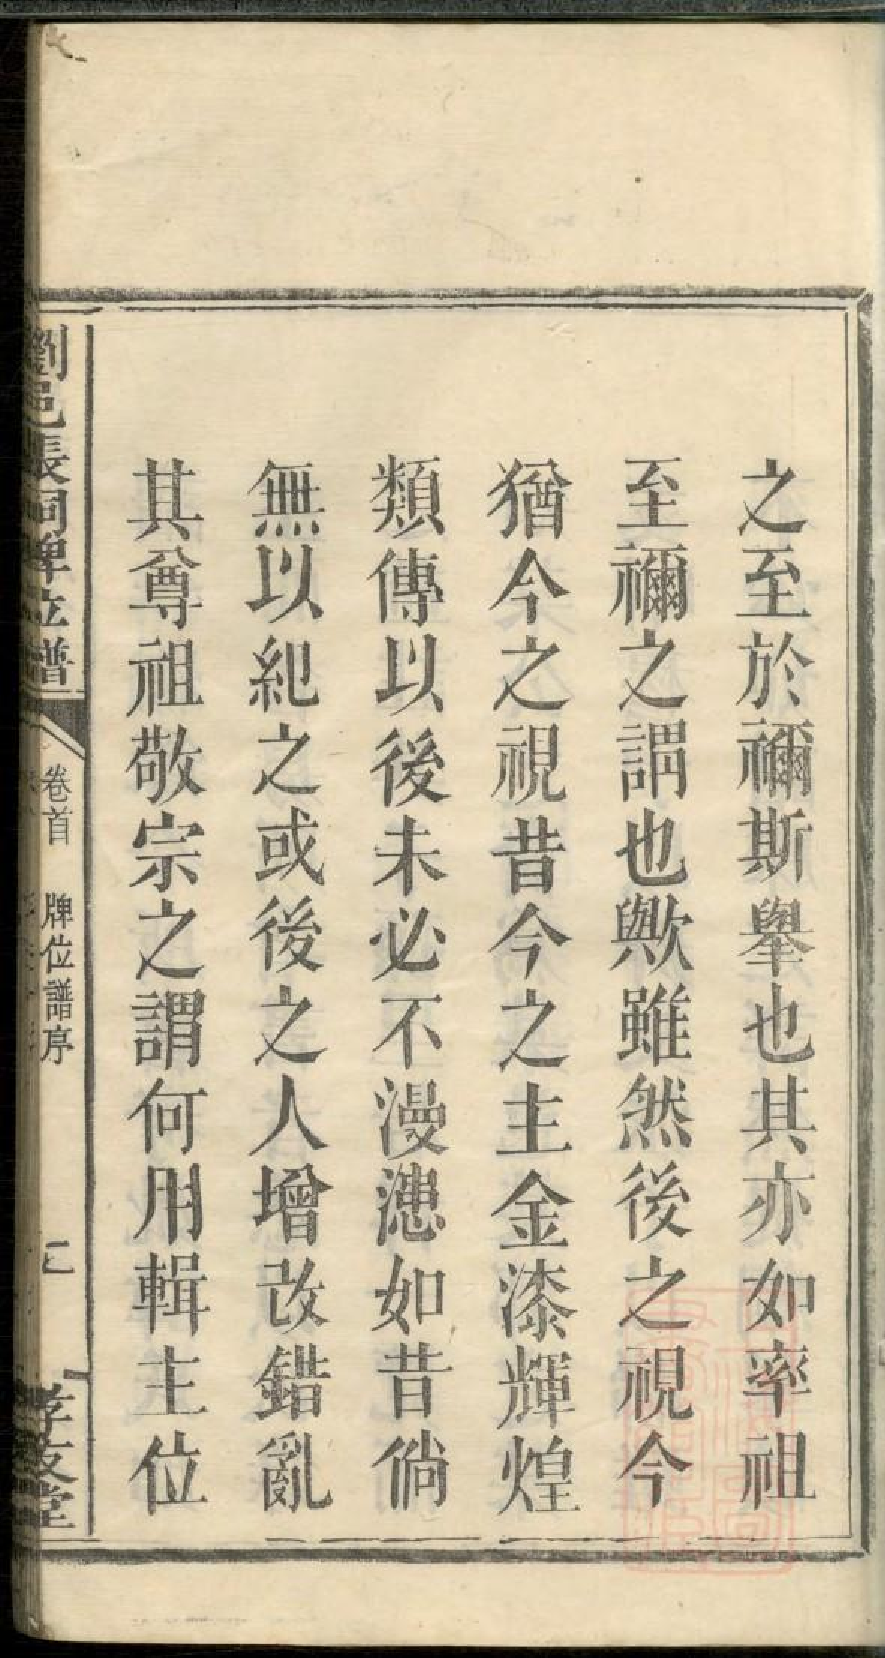 之至於禰斯舉也其亦如率祖
至禰之謂也歟雖然後之視今
猶今之視昔今之主金漆輝煌
類傳以後未必不漫漶如昔倘
無以紀之或後之人增改錯亂
其尊祖敬宗之謂何用輯主位
瀏邑張祠牌位譜
卷首
牌位譜序
孝友堂